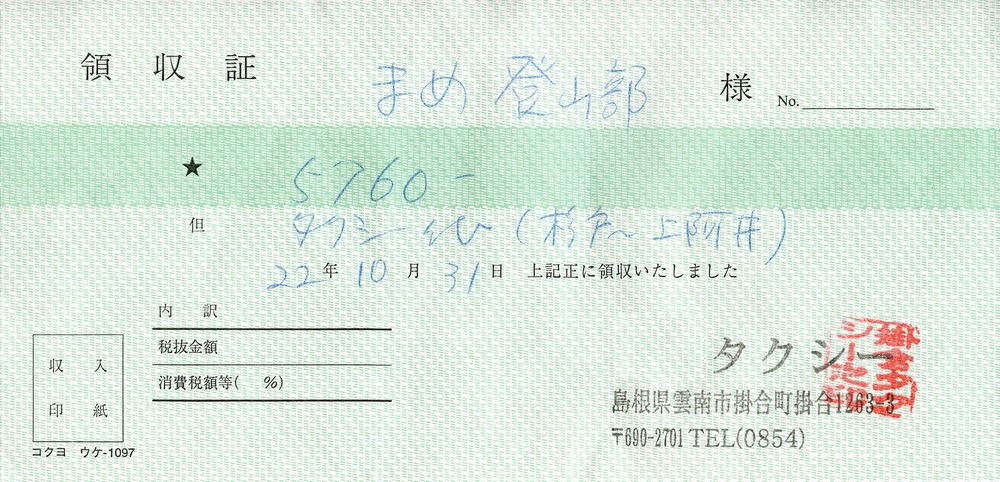 領収証 まめ登山部 様 No.
★ 5760-
但 タクシー代(杉戸〜上阿井)
22年10月31日 上記正に領収いたしました
内訳
税抜金額
消費税額等( %)
収入
印紙
コクヨ ウケ-1097
タクシー
島根県雲南市掛合町掛合1263-3
〒690-2701 TEL(0854)